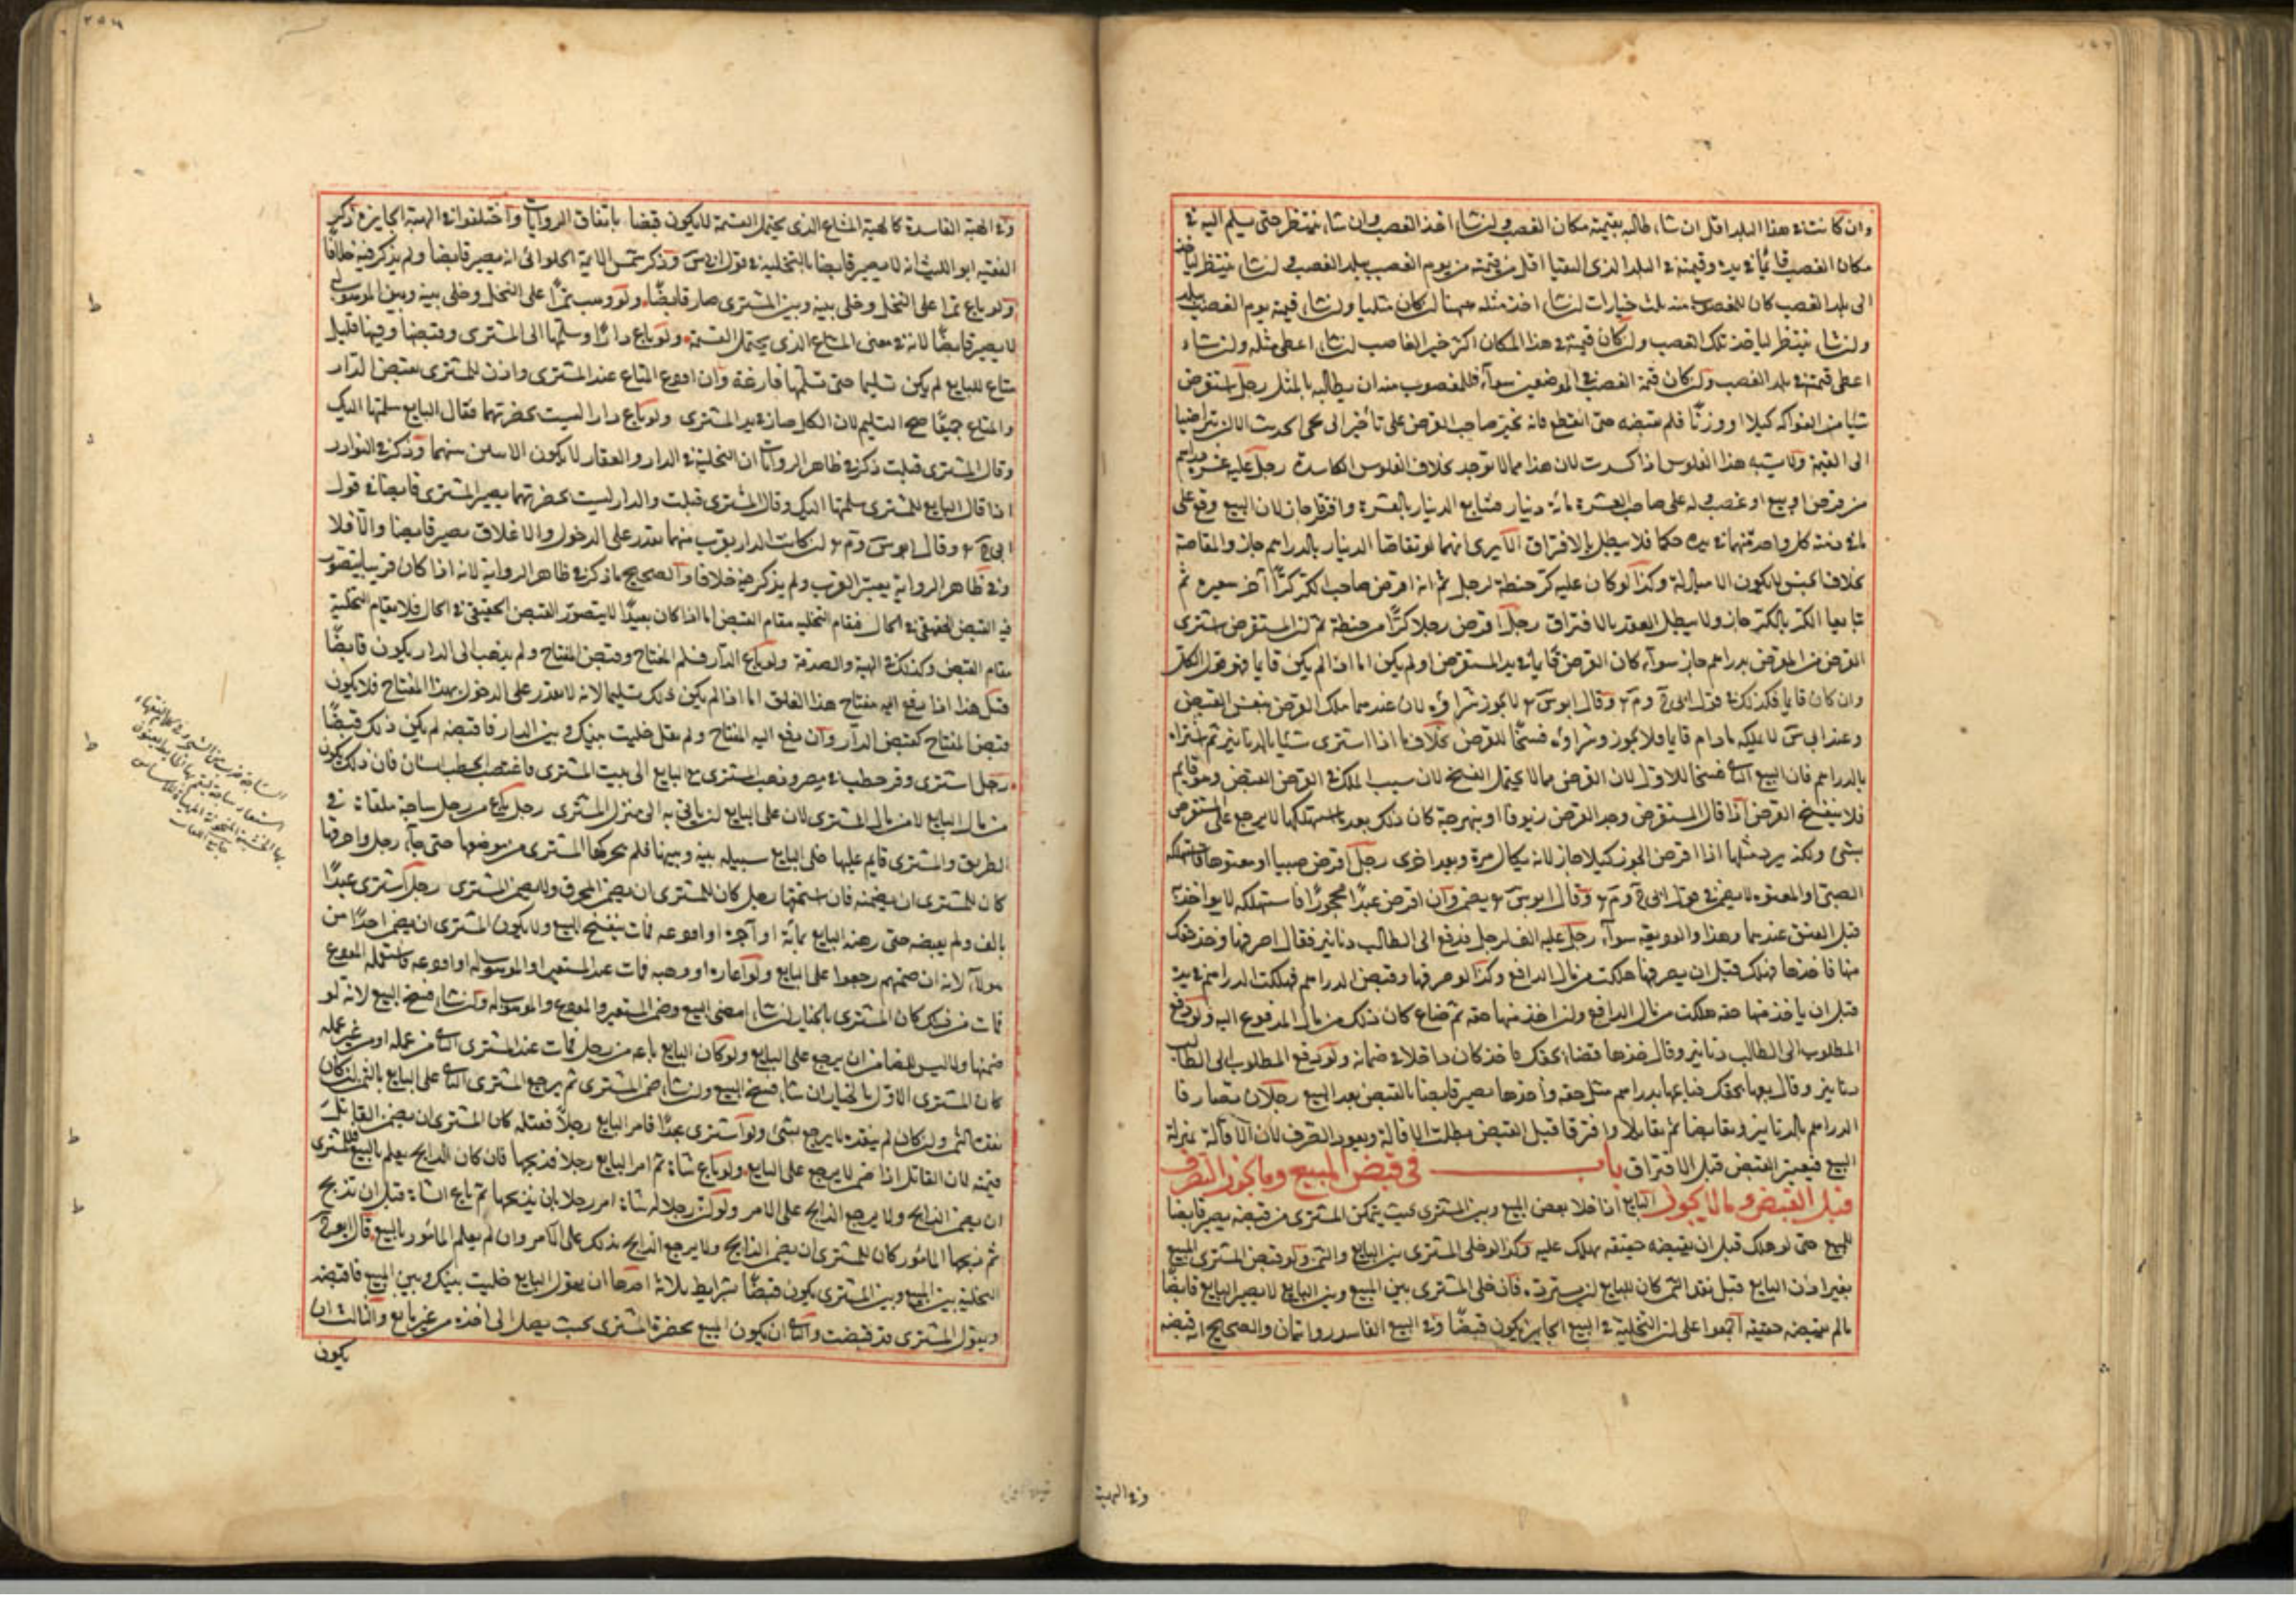 وان كانت في هذا البلد اقل ان شاء طالبه بقيمته مكان الغصب وان شاء اخذ الغصب وان شاء ينتظر حتى يسلم اليه في
مكان الغصب قائما في يده وقيمته في البلد الذي التقيا اقل من قيمته من يوم الغصب ببلد الغصب وان شاء ينتظر لياخذ
الى بلد الغصب كان للمغصوب منه ثلث خيارات ان شاء اخذ مثله ههنا ان كان مثليا وان شاء قيمته يوم الغصب ببلد
وان شاء ينتظر لياخذ تلك الغصب وان كان قيمته في هذا المكان اكثر خير الغاصب ان شاء اعطى مثله وان شاء
اعطى قيمته في بلد الغصب وان كان قيمة الغصب في الموضعين سواء فللمغصوب منه ان يطالبه بالمثل رجل استقرض
شيئا من الفواكه كيلا او وزنا فلم يقبضه حتى انقطع فانه يخير صاحب القرض على تأخير الى مجئ الحديث الا ان يتراضيا
الى القيمة ولا يشبه هذا الفلوس اذا كسدت لان هذا مما لا يوجد بخلاف الفلوس الكاسدة رجل عليه عشرة دراهم
من قرض او بيع او غصب وله على صاحب العشرة مائة دينار فتبايع الدينار بالعشرة وافترقا جاز لان البيع وقع على
ما في ذمته كل واحد منهما في يده حكما فلا يبطل بالافتراق الا يرى انهما لو تقاصا الدينار بالدراهم جاز والمقاصة
بخلاف الجنس لا يكون الا مبادلة وكذا لو كان عليه كر حنطة لرجل ثم انه اقرض صاحب الكر كرا آخر شعيره ثم
تبايعا الكر بالكر جاز ولا يبطل العقد بالافتراق رجل اقرض رجلا كرا من حنطة ثم ان المستقرض اشترى
القرض من المقرض بدراهم جاز سواء كان القرض قايما في يد المستقرض او لم يكن اما اذا لم يكن قايما فهو قول الكل
وان كان قايما فكذلك في قول ابى ح وم وقال ابو س لا يجوز شراؤه لان عندهما ملك القرض بنفس القبض
وعند ابى س لا يملكه ما دام قايما فلا يجوز وشراؤه فسخا للقرض بخلاف ما اذا اشترى شيئا بالدنانير ثم اشتراه
بالدراهم فان البيع الثاني فسخا للاول لان القرض مما لا يحتمل الفسخ لان سبب الملك في القرض القبض وهو قايم
فلا ينفسخ القرض اذا قال المستقرض وجد القرض زيوفا او بنهرجة كان ذلك بعد ما استهلكها لا يرجع على المقرض
بشئ ولكنه يرد مثلها اذا اقرض الجوز كيلا جاز لانه يكال مرة ويعد اخرى رجل اقرض صبيا او معتوها فاستهلكه
الصبى او المعتوه لا يضمن في قول ابى ح وم وقال ابو س يضمن وان اقرض عبدا محجورا فاستهلكه لا يواخذ
قبل العتق عندهما وهذا والوديعة سواء رجل عليه الف لرجل فدفع الى الطالب دنانير فقال اصرفها وخذ حقك
منها فاخذها فهلك قبل ان يصرفها هلكت من مال الدافع وكذا لو صرفها وقبض الدراهم فهلكت الدراهم في يده
قبل ان ياخذ منها حقه هلكت من مال الدافع وان اخذ منها حقه ثم ضاع كان ذلك من مال المدفوع اليه ولو دفع
المطلوب الى الطالب دنانير وقال خذها قضاء بحقك فاخذ كان داخلا في ضمانه ولو دفع المطلوب الى الطالب
دنانير وقال بعها بحقك فباعها بدراهم مثل حقه واخذها يصير قابضا بالقبض بعد البيع رجلان تصارفا
الدراهم بالدنانير وتقابضا ثم تقايلا وافترقا قبل القبض بطلت الاقالة ويعود الصرف لان الاقالة بمنزلة
البيع فيعتبر القبض قبل الافتراق باب في قبض المبيع وما يجوز التصرف
قبل القبض وما لا يجوز البايع اذا خلا بعض المبيع وبين المشترى بحيث يتمكن المشترى من قبضه يصير قابضا
للمبيع حتى لو هلك قبل ان يقبضه حقيقة يهلك عليه وكذا لو خلى المشترى بين البايع والثمن ولو قبض المشترى المبيع
بغير اذن البايع قبل نقد الثمن كان للبايع ان يسترده فان خلى المشترى بين المبيع وبين البايع لا يصير البايع قابضا
ما لم يقبضه حقيقة اجمعوا على ان التخلية في البيع الجايز يكون قبضا وفي البيع الفاسد روايتان والصحيح انه قبضه
وفي الهبة
وفي الهبة الفاسدة كالهبة المشاع الذي يحتمل القسمة لا يكون قبضا باتفاق الروايات واختلفوا في الهبة الجايزة ذكر
الفقيه ابو الليث انه لا يصير قابضا بالتخلية في قول ابى س وذكر شمس الائمة الحلوائى انه يصير قابضا ولم يذكر فيه خلافا
ولو باع تمرا على النخل وخلى بينه وبين المشترى صار قابضا ولو وهب تمرا على النخل وخلى بينه وبين الموهوب له
لا يصير قابضا لانه في معنى المشاع الذي يحتمل القسمة ولو باع دارا وسلمها الى المشترى وقبضها وفيها قليل
متاع للبايع لم يكن تسليما حتى تسلمها فارغة وان اودع المتاع عند المشترى واذن للمشترى بقبض الدار
والمتاع جميعا صح التسليم لان الكل صار في يد المشترى ولو باع دارا ليست بحضرتهما فقال البايع سلمتها اليك
وقال المشترى قبلت ذكر في ظاهر الروايات ان التخلية في الدار والعقار لا يكون الا من منهما وذكر في النوادر
اذا قال البايع للمشترى سلمتها اليك وقال المشترى قبلت والدار ليست بحضرتهما يصير المشترى قابضا في قول
ابى ح وقال ابو س وم ان كانت الدار بقرب منهما بقدر على الدخول والاغلاق يصير قابضا والا فلا
وفي ظاهر الرواية يعتبر القرب ولم يذكر فيه خلافا والصحيح ما ذكر في ظاهر الرواية لانه اذا كان قريبا يتصور
فيه القبض الحقيقى في الحال فيقام التخلية مقام القبض اما اذا كان بعيدا لا يتصور القبض الحقيقى في الحال فلا يقام التخلية
مقام القبض وكذلك في الهبة والصدقة ولو باع الدار فسلم المفتاح وقبض المفتاح ولم يذهب الى الدار يكون قابضا
قيل هذا اذا دفع اليه مفتاح هذا الغلق اما اذا لم يكن فذلك تسليما لانه لا يقدر على الدخول بهذا المفتاح فلا يكون
قبض المفتاح كقبض الدار وان دفع اليه المفتاح ولم يقل خليت بينك وبين الدار فاقبضه لم يكن ذلك قبضا
رجل اشترى وقر حطب في مصر وذهب المشترى مع البايع الى بيت المشترى فاغتصب الحطب انسان فان ذلك يكون
من مال البايع لا من مال المشترى لان على البايع ان ياتي به الى منزل المشترى رجل باع من رجل ساجة ملقاة في
الطريق والمشترى قايم عليها خلى البايع سبيله بينه وبينها فلم يحركها المشترى من موضعها حتى جاء رجل واحرقها
كان للمشترى ان يضمنه فان استحقها رجل كان للمشترى ان يضمن المحرق ولا يضمن المشترى رجل اشترى عبدا
بالف ولم يقبضه حتى رهنه البايع بمائة او آجره او اودعه فمات ينفسخ البيع ولا يكون المشترى ان يضمن احدا من
هولاء لانه ان ضمنهم رجعوا على البايع ولو اعاره او وهبه فمات عند المستعير او الموهوب له او اودعه فاستعمله المودع
فمات من ذلك كان المشترى بالخيار ان شاء امضى البيع وضمن المستعير والمودع والموهوب له وان شاء فسخ البيع لانه لو
ضمنها وليس للضامن ان يرجع على البايع ولو كان البايع باعه من رجل فمات عند المشترى الثاني من عمله او من غير عمله
كان المشترى الاول بالخيار ان شاء فسخ البيع وان شاء ضمن المشترى ثم يرجع المشترى الثاني على البايع بالثمن ان كان
نقد الثمن وان كان لم ينقده لا يرجع بشئ ولو اشترى عبدا فامر البايع رجلا فقتله كان المشترى ان يضمن القاتل
قيمته لان القاتل اذا ضمن لا يرجع على البايع ولو باع شاة ثم امر البايع رجلا فذبحها فان كان الذابح يعلم بالبيع فللمشترى
ان يضمن الذابح ولا يرجع الذابح على الامر ولو كان رجلا له شاة امر رجلا بان يذبحها ثم باع الشاة قبل ان تذبح
ثم ذبحها المأمور كان للمشترى ان يضمن الذابح ولا يرجع الذابح بذلك على الامر وان لم يعلم المأمور بالبيع قال ابو ح
التخلية بين المبيع وبين المشترى يكون قبضا بشرايط ثلاثة احدها ان يقول البايع خليت بينك وبين المبيع فاقبضه
ويقول المشترى قد قبضت والثاني ان يكون المبيع بحضرة المشترى بحيث يصل الى اخذه من غير مانع والثالث ان
يكون